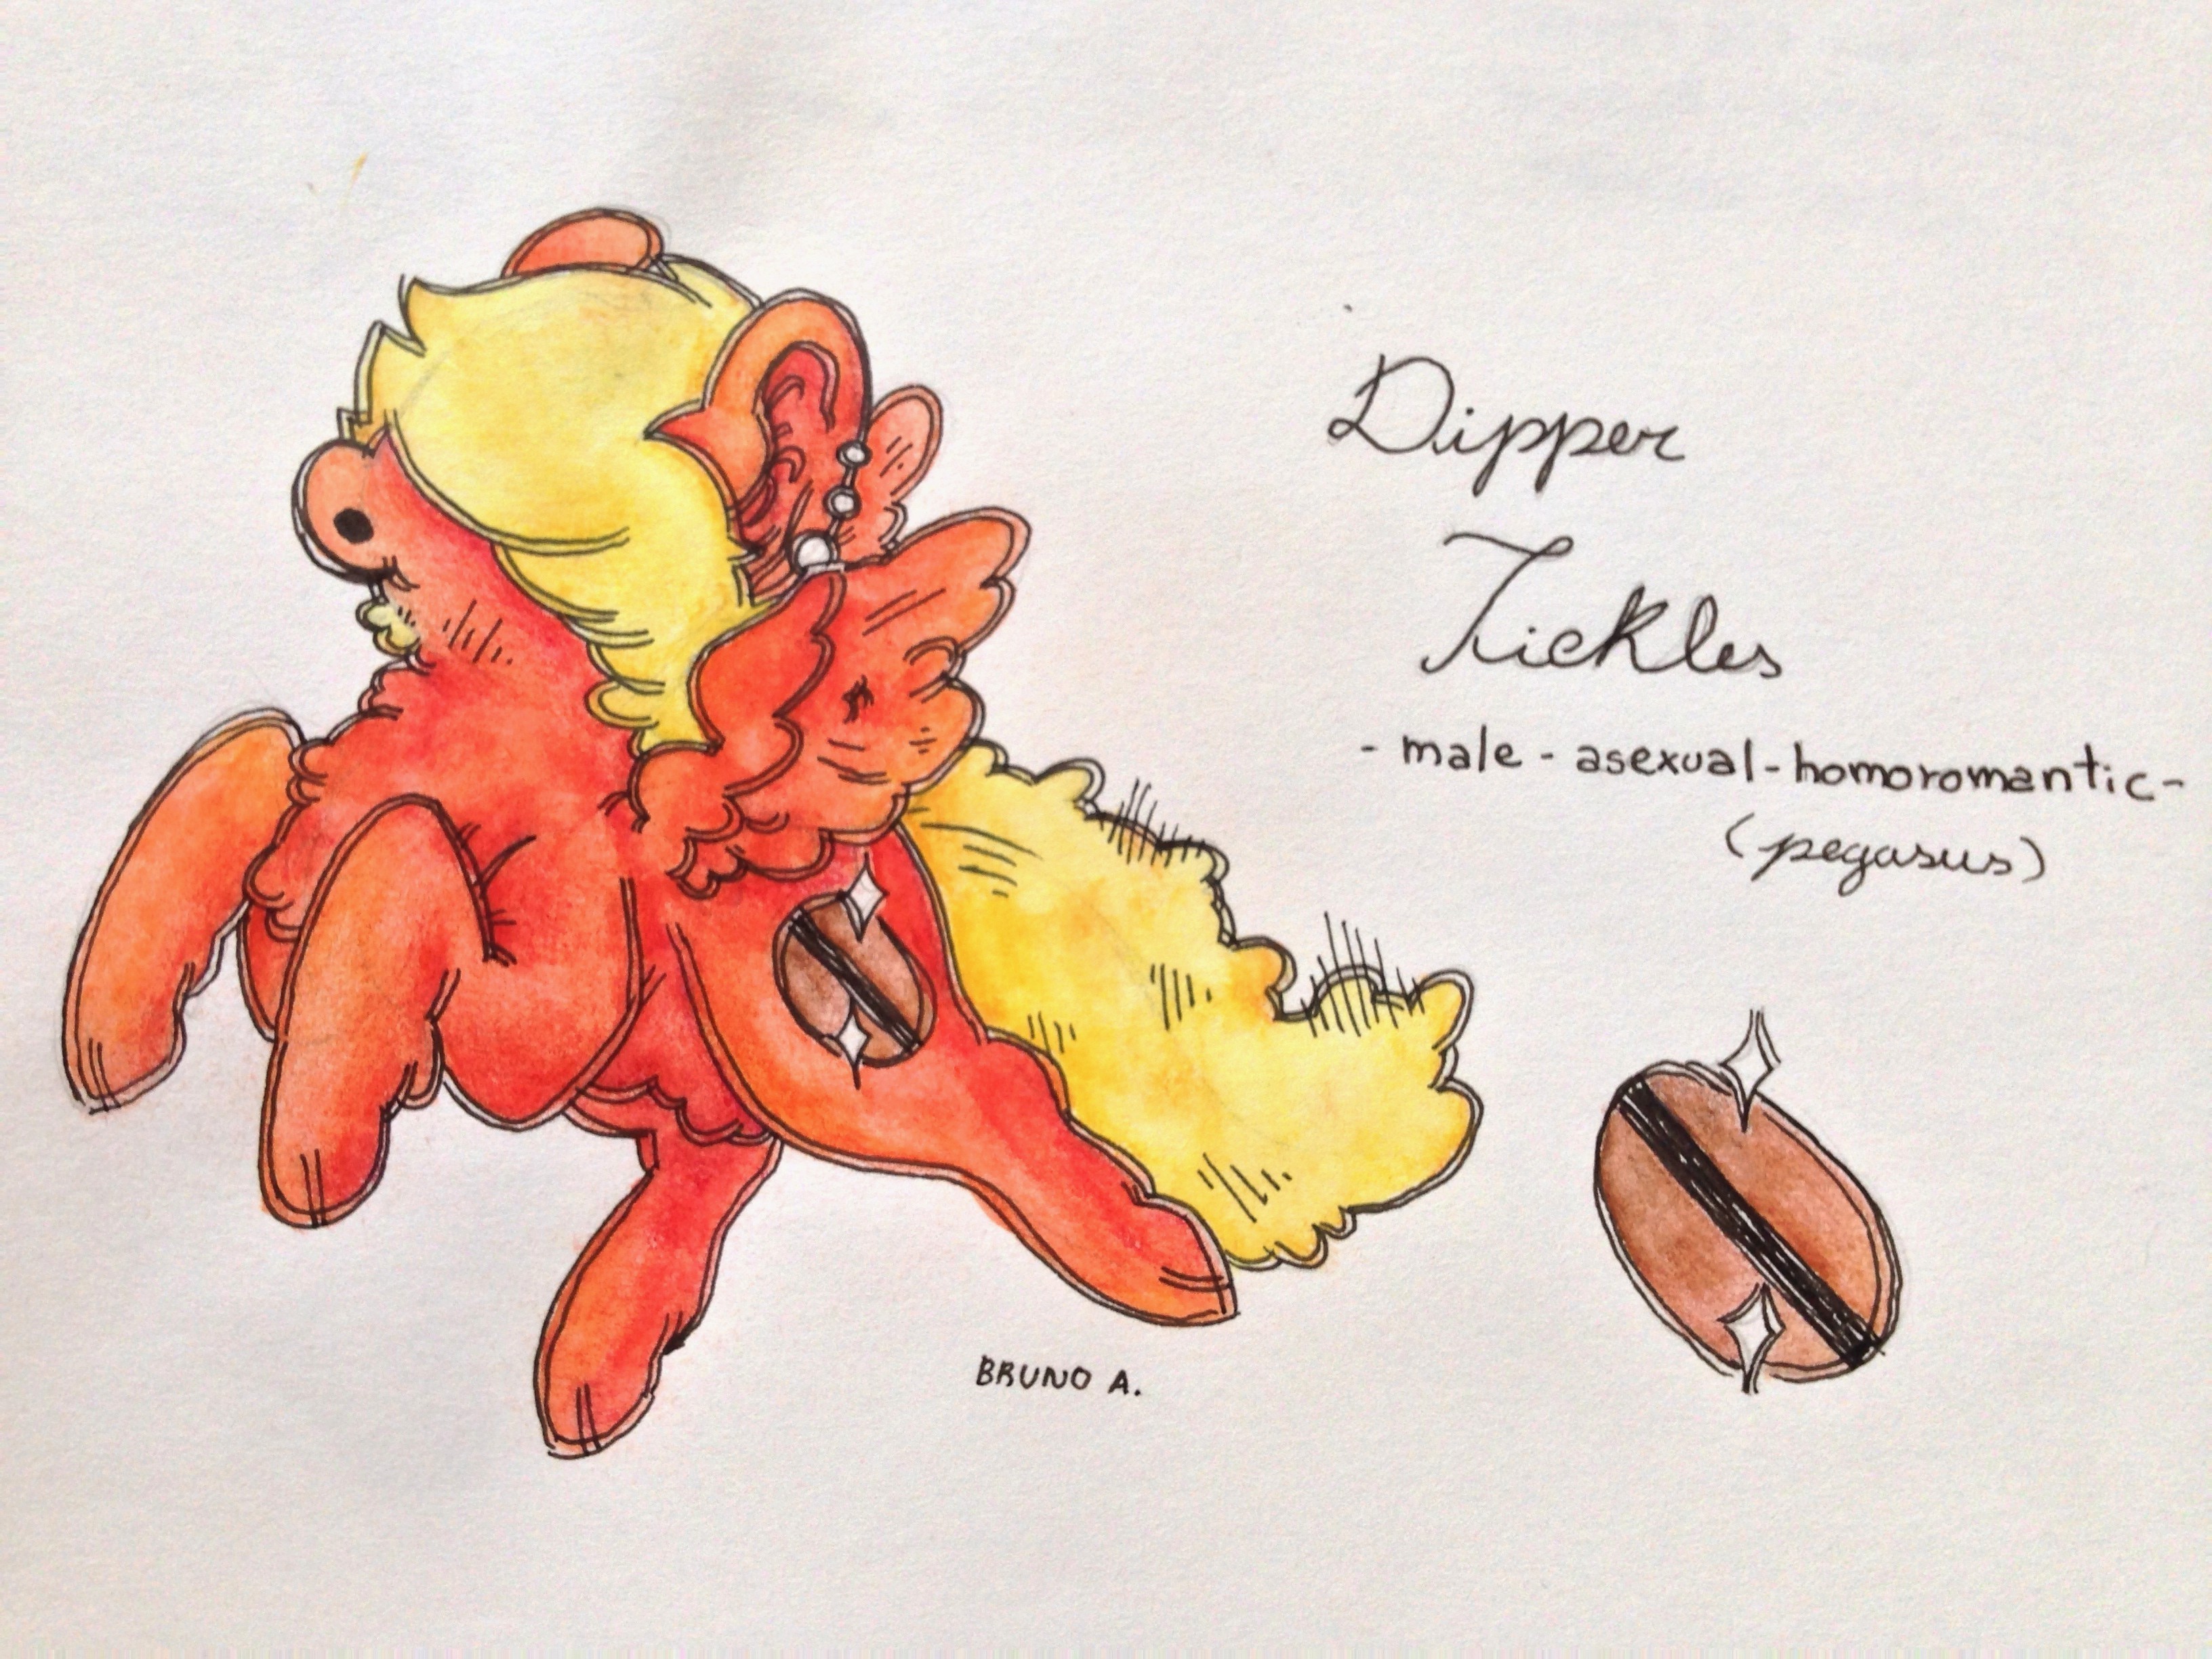 Dipper
Tickles
- male - asexual - homoromantic -
(pegasus)
BRUNO A.